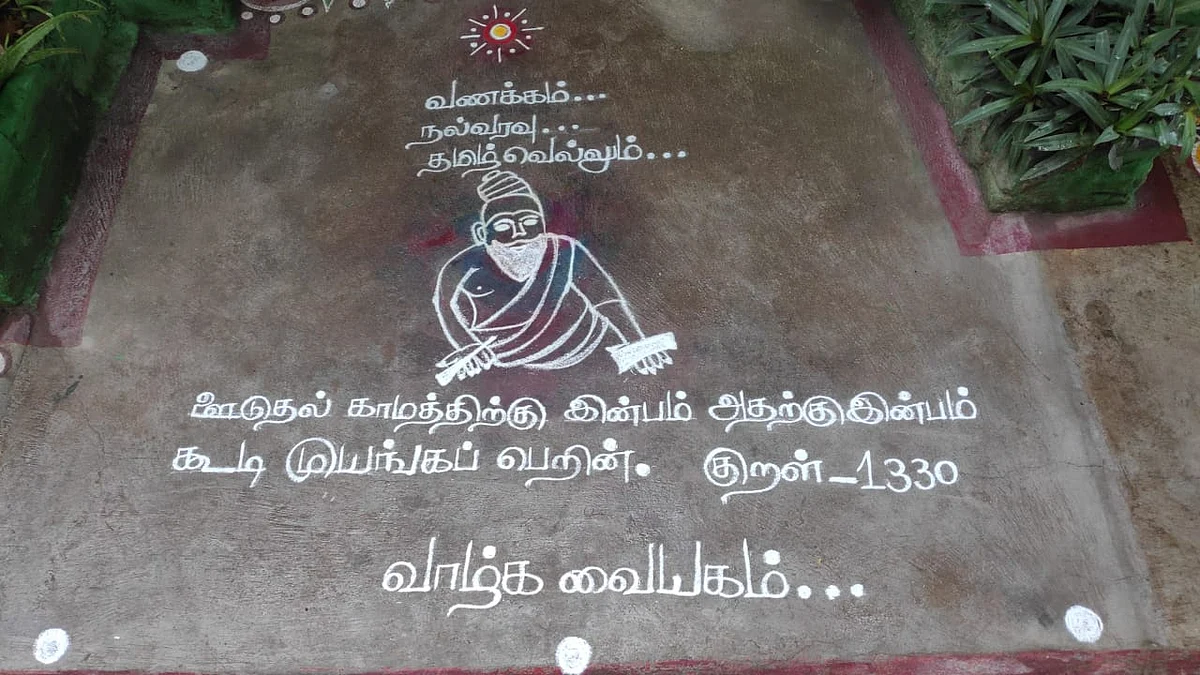 வணக்கம்...
நல்வரவு...
தமிழ் வெல்லும்...
ஊடுதல் காமத்திற்கு இன்பம் அதற்கு இன்பம்
கூடி முயங்கப் பெறின். குறள்-1330
வாழ்க வையகம்...